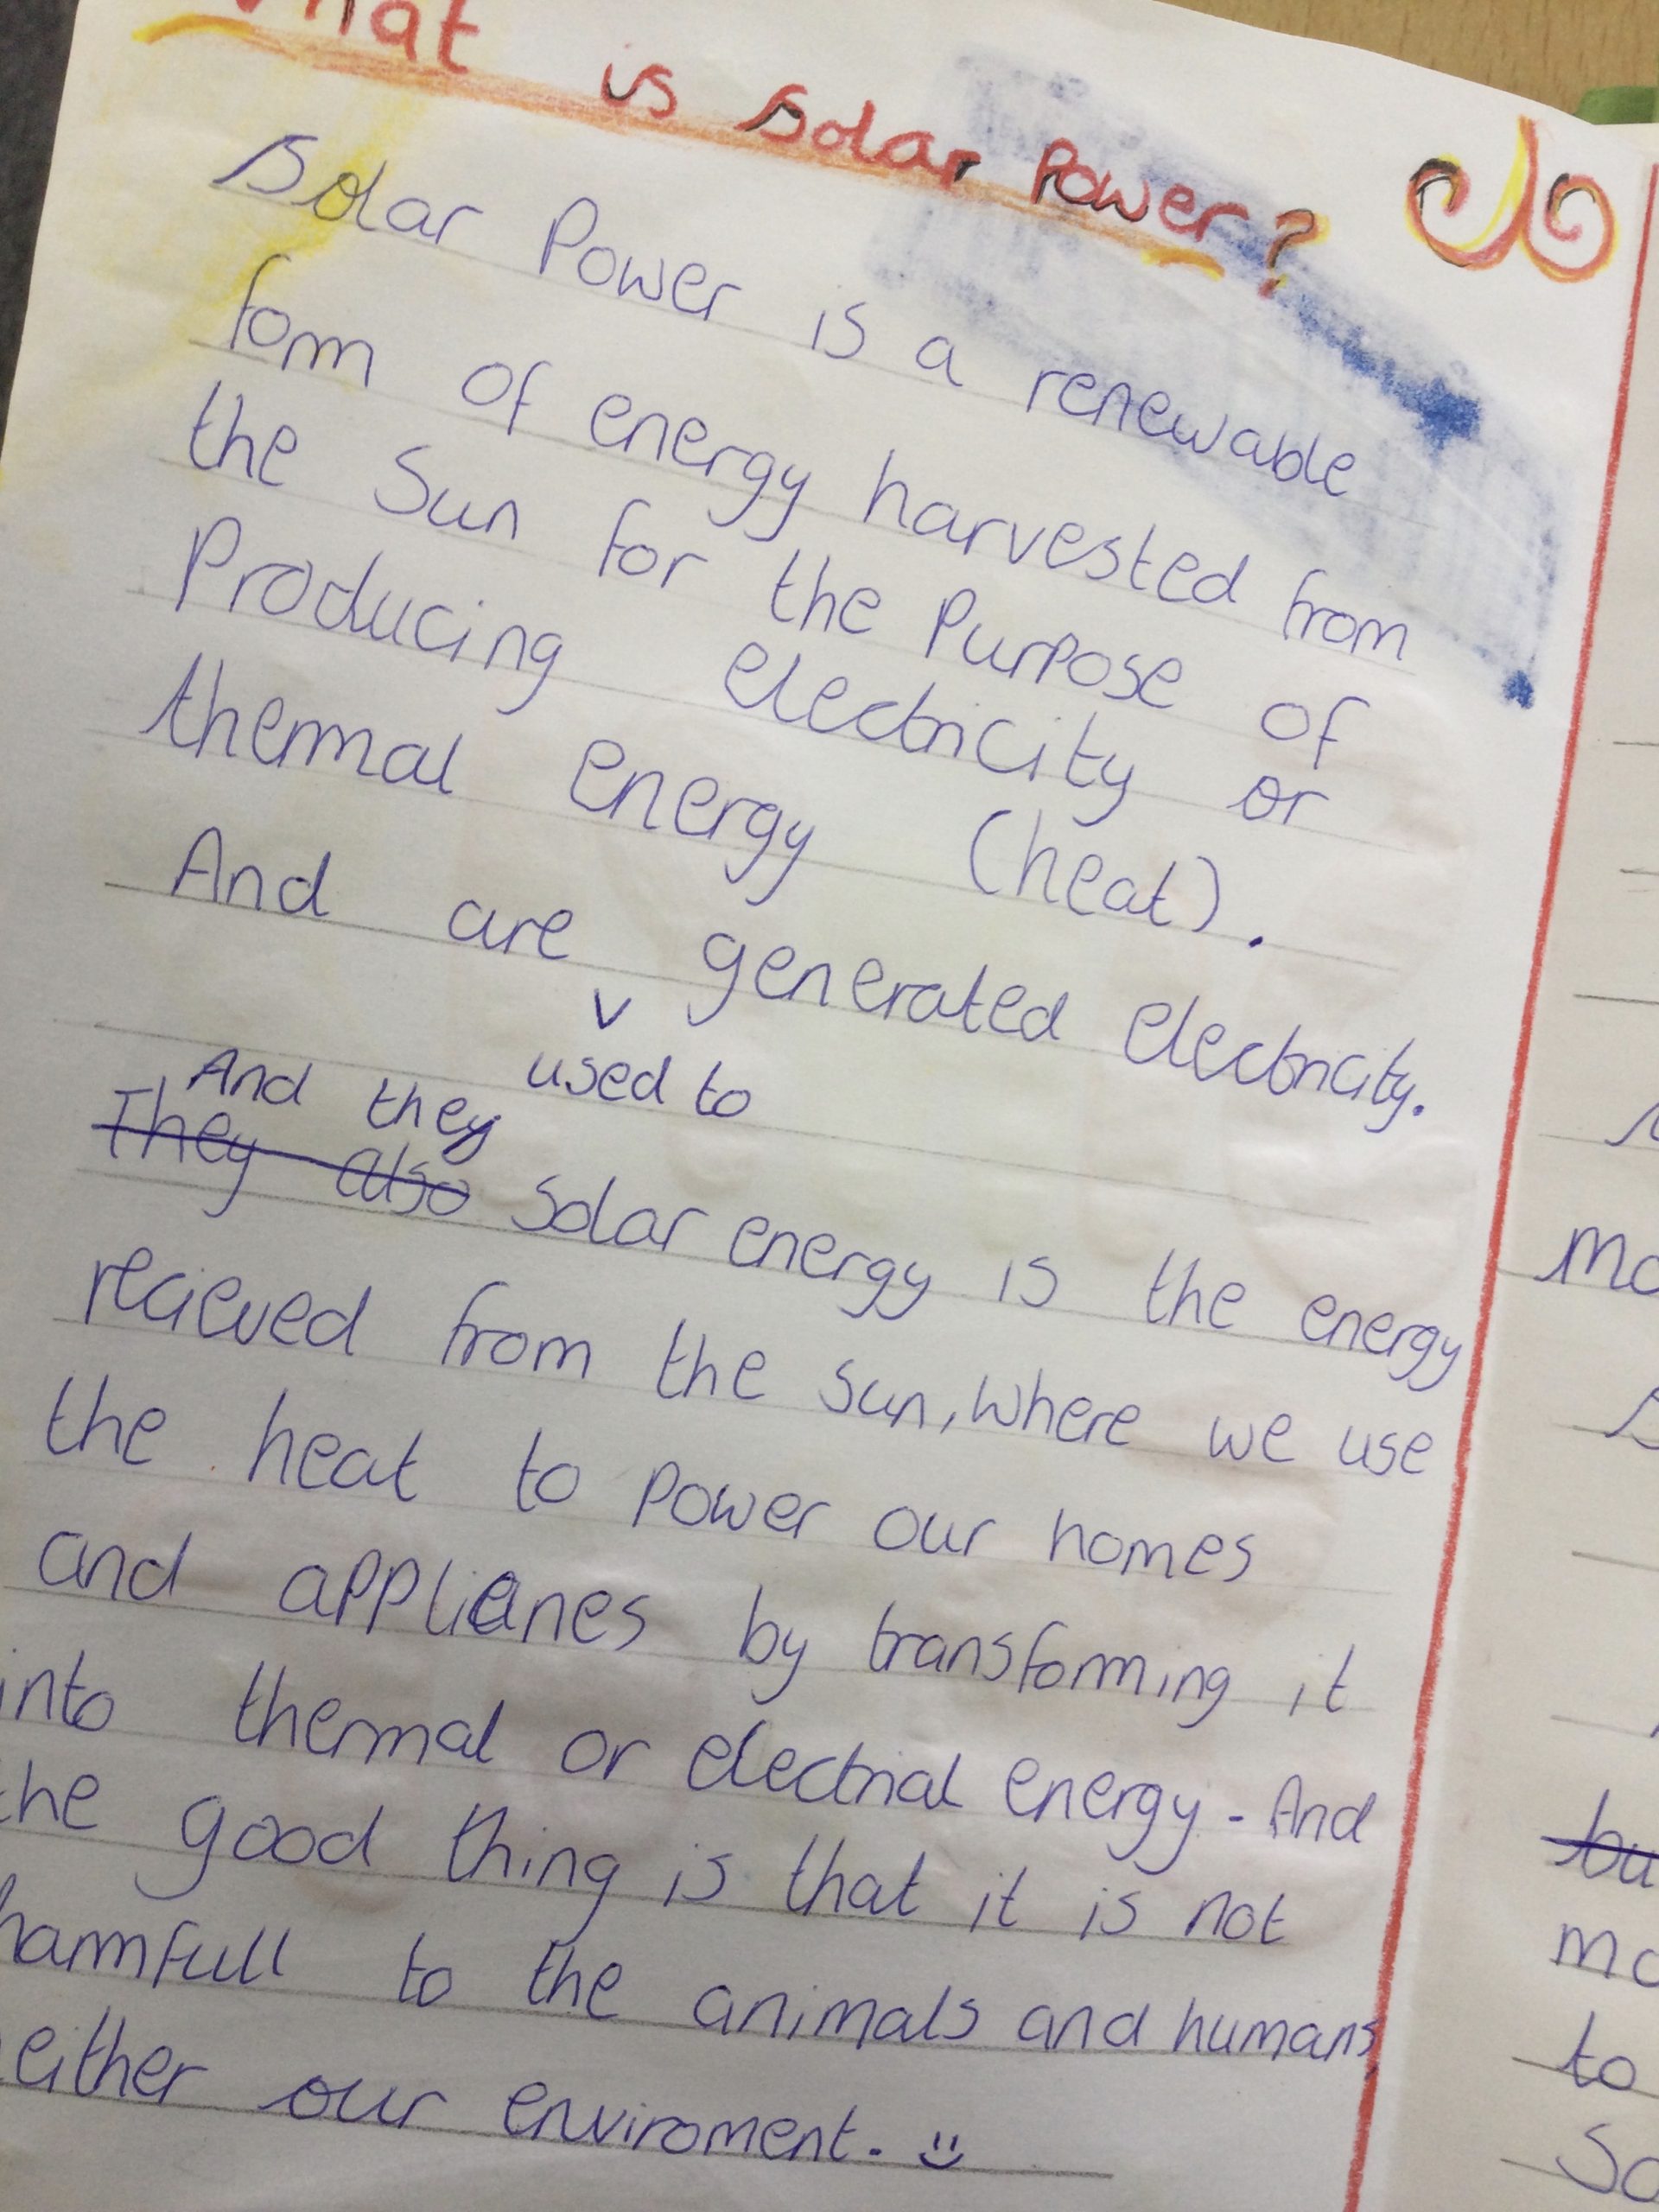 What is Solar Power?
Solar Power is a renewable
form of energy harvested from
the Sun for the Purpose of
Producing electricity or
thermal energy (heat).
And are generated electricity.
v
used to
And they
They also Solar energy is the energy
recieved from the sun, where we use
the heat to power our homes
and applianes by transforming it
into thermal or electrial energy - And
the good thing is that it is not
harmfull to the animals and humans,
either our enviroment. :)
mo
bu
mo
to
So